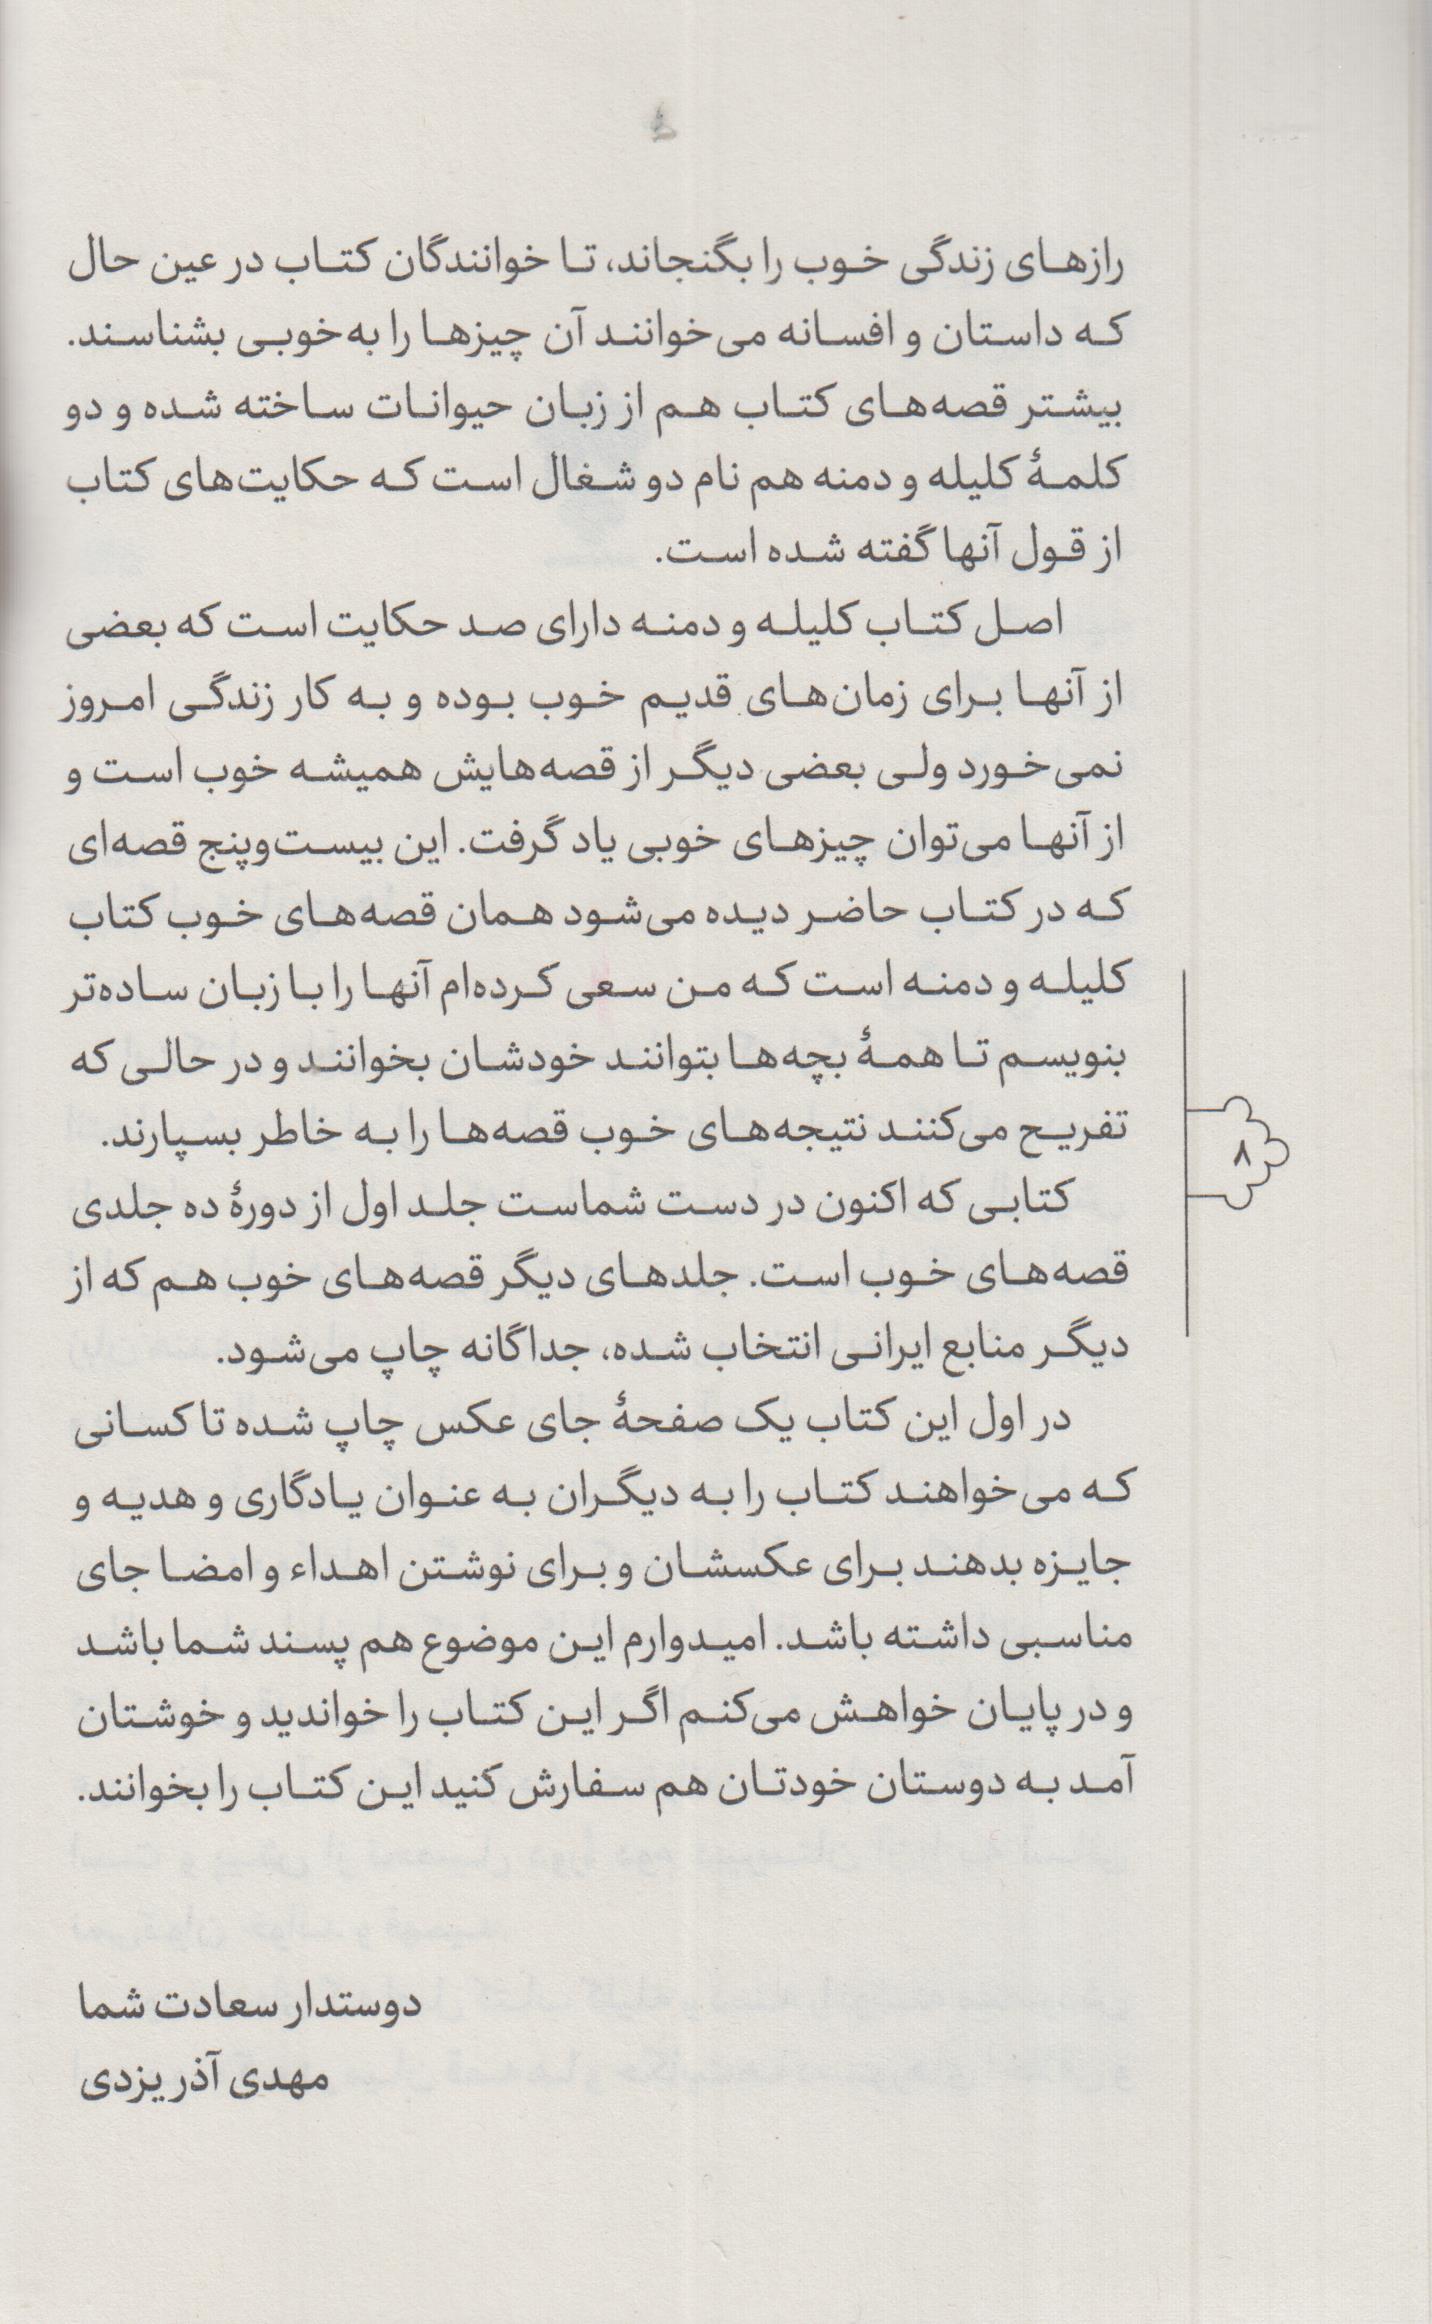 رازهای زندگی خوب را بگنجاند، تا خوانندگان کتاب در عین حال
که داستان و افسانه می‌خوانند آن چیزها را به‌خوبی بشناسند.
بیشتر قصه‌های کتاب هم از زبان حیوانات ساخته شده و دو
کلمهٔ کلیله و دمنه هم نام دو شغال است که حکایت‌های کتاب
از قول آنها گفته شده است.
اصل کتاب کلیله و دمنه دارای صد حکایت است که بعضی
از آنها برای زمان‌های قدیم خوب بوده و به کار زندگی امروز
نمی‌خورد ولی بعضی دیگر از قصه‌هایش همیشه خوب است و
از آنها می‌توان چیزهای خوبی یاد گرفت. این بیست‌وپنج قصه‌ای
که در کتاب حاضر دیده می‌شود همان قصه‌های خوب کتاب
کلیله و دمنه است که من سعی کرده‌ام آنها را با زبان ساده‌تر
بنویسم تا همهٔ بچه‌ها بتوانند خودشان بخوانند و در حالی که
تفریح می‌کنند نتیجه‌های خوب قصه‌ها را به خاطر بسپارند.
۸
کتابی که اکنون در دست شماست جلد اول از دورهٔ ده جلدی
قصه‌های خوب است. جلدهای دیگر قصه‌های خوب هم که از
دیگر منابع ایرانی انتخاب شده، جداگانه چاپ می‌شود.
در اول این کتاب یک صفحهٔ جای عکس چاپ شده تا کسانی
که می‌خواهند کتاب را به دیگران به عنوان یادگاری و هدیه و
جایزه بدهند برای عکسشان و برای نوشتن اهداء و امضا جای
مناسبی داشته باشد. امیدوارم این موضوع هم پسند شما باشد
و در پایان خواهش می‌کنم اگر این کتاب را خواندید و خوشتان
آمد به دوستان خودتان هم سفارش کنید این کتاب را بخوانند.
دوستدار سعادت شما
مهدی آذر یزدی